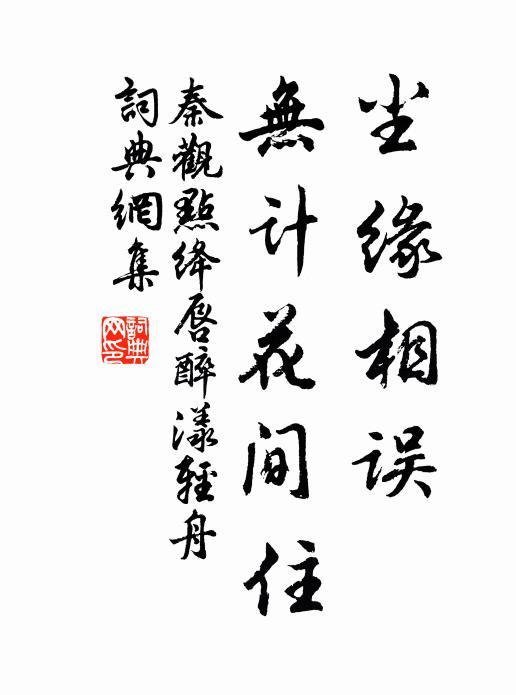 尘缘相误
無计花间住
秦觀點绛唇醉漾輕舟
詞典網集
詞典
网印